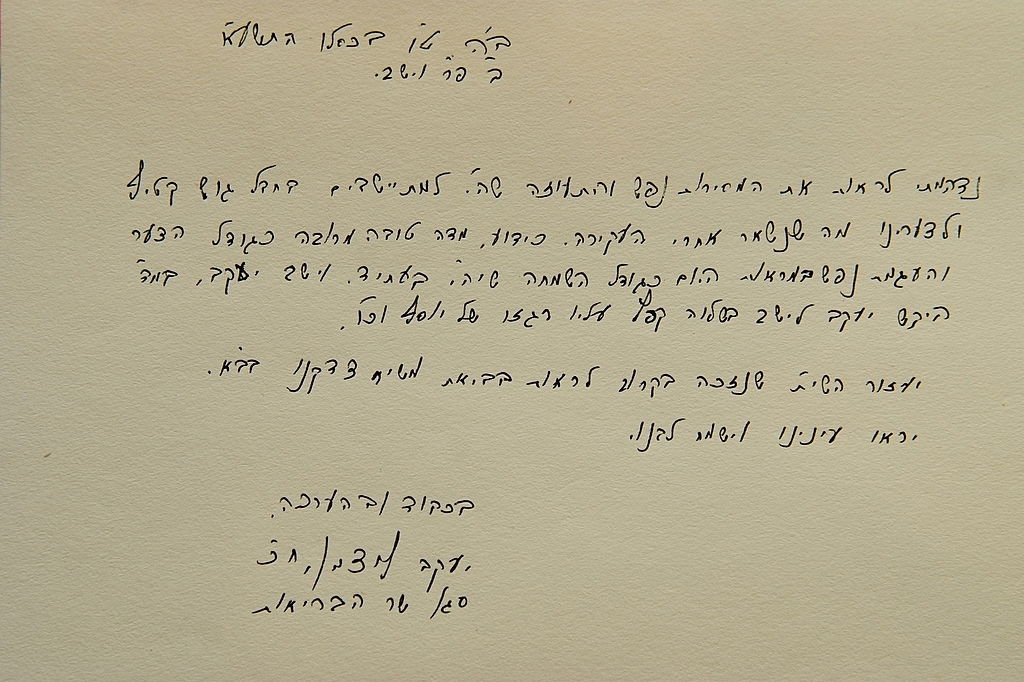 ב"ה ט"ו בכסלו התשע"א
ב' פר' וישב.
נדהמתי לראות את המסירות נפש והתעוזה שהי' למתיישבים בחבל גוש קטיף
ולצערינו מה שנשאר אחרי העקירה. כידוע, מדה טובה מרובה כגודל הצער
והעגמת נפש במראות היום כגודל השמחה שיהי' בעתיד. וישב יעקב, במד'
ביקש יעקב לישב בשלוה קפץ עליו רגזו של יוסף וכו'.
יעזור השי"ת שנזכה בקרוב לראות בביאת משיח צדקנו בב"א.
יראו עינינו וישמח לבנו.
בכבוד ובהערכה,
יעקב ליצמן, ח"כ
סגן שר הבריאות